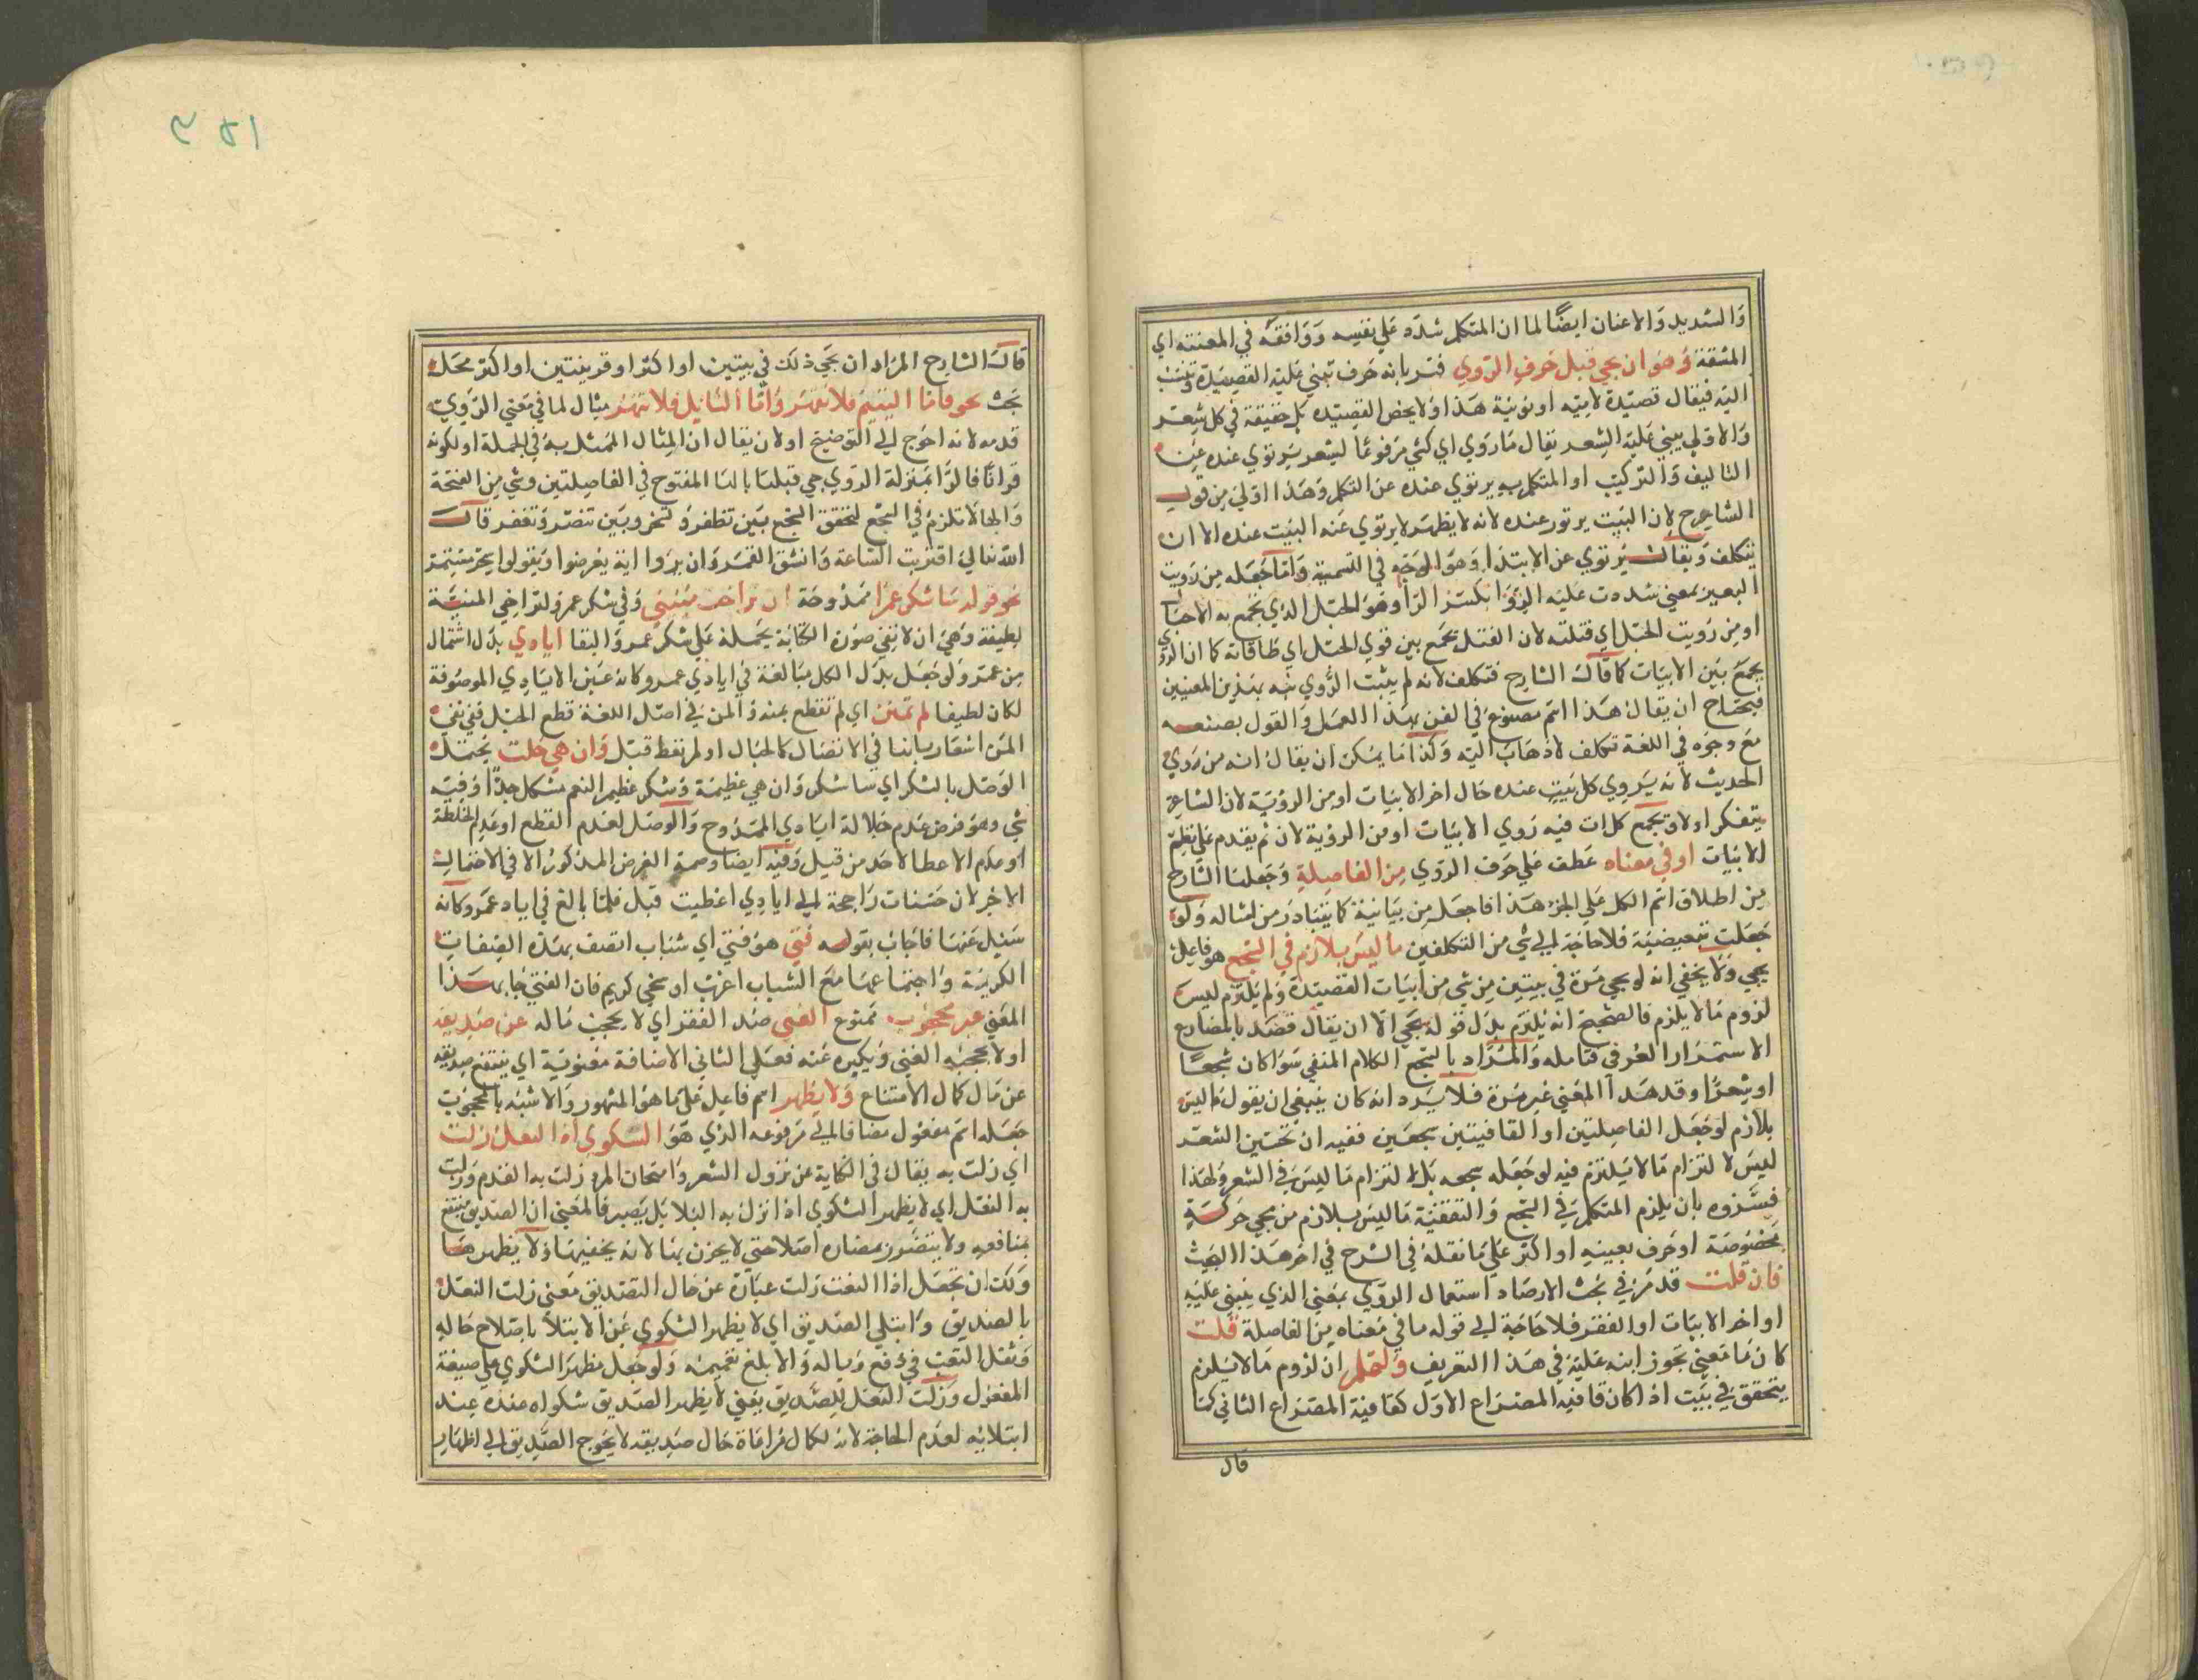 والتشديد والاعنات ايضًا لما ان المتكلم شدد علي نفسه ووافقه في المعنته اي
المشقة وهو ان يجي قبل حرف الروي فسر بانه حرف تبني عليه القصيدة وتنسب
اليه فيقال قصيدة لامية او نونية هذا ولا يخص القصيده بل حقيقة في كل شعر
والاولي يبني عليه الشعر يقال ماروي اي كئي مرفوعا لشعر يرتوي عنده عن
التاليف والتركيب او المتكلم به يرتوي عنده عن التكلم وهذا اولي من قول
الشارح لان البيت يرتوي عنده لانه لا يظهر لا يرتوي عنه البيت عنده الا ان
يتكلف ويقال يرتوي عن الابتدا وهو الوجه في التسمية واما جعله من رويت
البعير بمعني شددت عليه الروا بكسر الرا وهو الحبل الذي يجمع به الاحمال
او من رويت الحبل اي فتلته لان الفتل يجمع بين قوي الحبل اي طاقاته كما ان الروي
يجمع بين الابيات كما قال الشارح فتكلف لانه لم يثبت الروي بهذين المعنيين
فيحتاج ان يقال هذا اسم مصنوع في الفن بهذا العمل والقول بصنعه
مع وجوه في اللغة تكلف لا ذهاب اليه وكذا ما يمكن ان يقال انه من روي
الحديث لانه يروي كل بيت عنده حال اخر الابيات او من الروية لان الشاعر
يتفكر اولا ويجمع كلمات فيه روي الابيات او من الروية لان ثم يقدم علي نظم
الابيات او في معناه عطف علي حرف الروي من الفاصلة وجعلها الشارح
من اطلاق اسم الكل علي الجزء هذا اذا جعل من بيانية كما يتبادر من امثاله ولو
جعلت تبعيضية فلا حاجة الي شي من التكلفين ما ليس بلازم في السجع هو فاعل
يجي ولا يخفي انه لو يجي مرة في بيتين من شي من ابيات القصيدة ولم يلتزم ليس
لزوم ما لا يلزم فالصحيح انه يلتزم بدل قوله يجي الا ان يقال قصد بالمضارع
الاستمرار العرفي فتامله والمراد بالسجع الكلام المنفي سوا كان سجعًا
او شعرًا وقد هدا المعني غير مرة فلا يرد انه كان ينبغي ان يقول ما ليس
بلازم لو جعل الفاصلتين او القافيتين سجعين ففيه ان تحتين الشعر
ليس لالتزام ما لا يلتزم فيه لو جعله سجعه بل لالتزام ما ليس في الشعر ولهذا
فسروه بان يلزم المتكلم في السجع والتقفية ما ليس بلازم من مجي حركة
مخصوصة او حرف بعينه او اكثر علي ما نقله في الشرح في اخر هذا البحث
فان قلت قد مر في بحث الارصاد استعمال الروي بمعني الذي يبني عليه
اواخر الابيات او الفقر فلا حاجة الي قوله ما في معناه من الفاصلة قلت
كان ما معني يجوز ابنه عليه في هذا التعريف ولعلم ان لزوم ما لا يلزم
يتحقق في بيت اذا كان قافيه المصراع الاول كقافية المصراع الثاني كما
قال
قال الشارح المراد ان يجي ذلك في بيتين او اكثر او قرينتين او اكثر محل
بحث نحو فاما اليتيم فلا تقهر واما السائل فلا تنهر مثال لما في معني الروي
قدمه لانه احوج الي التوضيح او لان يقال ان المثال الممثل به في الجملة او لكونه
قرانًا فالرا بمنزلة الروي جي قبلها بالها المفتوح في الفاصلتين وشي من الفتحة
والها لا تلزم في السجع لتحقق السجع بين تظفر وتحز وبين تنصر وتغفر قال
الله تعالي اقتربت الساعة وانشق القمر وان يروا اية يعرضوا ويقولوا سحر مستمر
نحو قوله ساشكر عمرا ممدوحة ان تراخت منيتي وفي شكر عمر ولتراخي المنية
لطيفة وهي ان لا تبقي صورة الكتابة يحمله علي شكر عمر والبقا ايادي بدل اشتمال
من عمرو لو جعل بدل الكل مبالغة في ايادي عمرو كانه عين الايادي الموصوفة
لكان لطيفا لم تمنن اي لم تقطع بمنه والمن في اصل اللغة قطع الحبل ففي نفي
المن اشعار بانها في الاتصال كالحبال او لم تقط قبل وان هي جلت يحتمل
الوصل بالشكر اي ساشكر وان هي عظيمة وشكر عظيم النعم مشكل جدًا وفيه
شي وهو فرض عدم جلالة ايادي الممدوح والوصل لعدم القطع او عدم الخلطة
او عدم الاعطا لاحد من قبل وفيه ايضا وصمة الغرض المذكور الا في الاحتمال
الاخر لان حسنات راجحة الي ايادي اعطيت قبل فلما بالغ في اياد عمرو كانه
سئل عنها فاجاب بقوله فتي هو فتي اي شباب اتصف بهذه الصفات
الكريمة واجتماعها مع الشباب اعزب او سخي كريم فان الفتي جا بهذا
المعني غير محجوب ممنوع الغني ضد الفقر اي لا يحجب ماله عن صديقه
او لا يحجبه الغني ويكبره عنه فعلي الثاني الاضافة معنوية اي ينتفع صديقه
عن مال كمال الامتناع ولا يظهر اسم فاعل علي ما هو المشهور والاشبه بالمحجوب
جعله اسم مفعول مضافا الي مرفوعه الذي هو الشكوي اذا النعل زلت
اي زلت به يقال في الكناية عن نزول الشعر وامتحان المرء زلت به القدم وزلت
به النعل اي لا يظهر الشكوي اذا نزل به البلا بل يصبر فالمعني ان الصديق ينتفع
بمنافعه ولا يتضرر بمضاره اصلا حتي لا يحزن بها لانه يخفيها ولا يظهرها
ولك ان تجعل اذا النعت زلت عبارة عن حال الصديق معني زلت النعل
بالصديق وابتلي الصديق اي لا يظهر الشكوي عن الابتلا باصلاح حاله
وثقل التعب في دفع وباله والابلغ تعميمه ولو جعل مظهر الشكوي علي صيغة
المفعول وزلت النعل للصديق يعني لا يظهر الصديق شكواه عنده عند
ابتلائه لعدم الحاجة لانه لكمال مراعاة حال صديقه لا يحوج الصديق الي اظهار